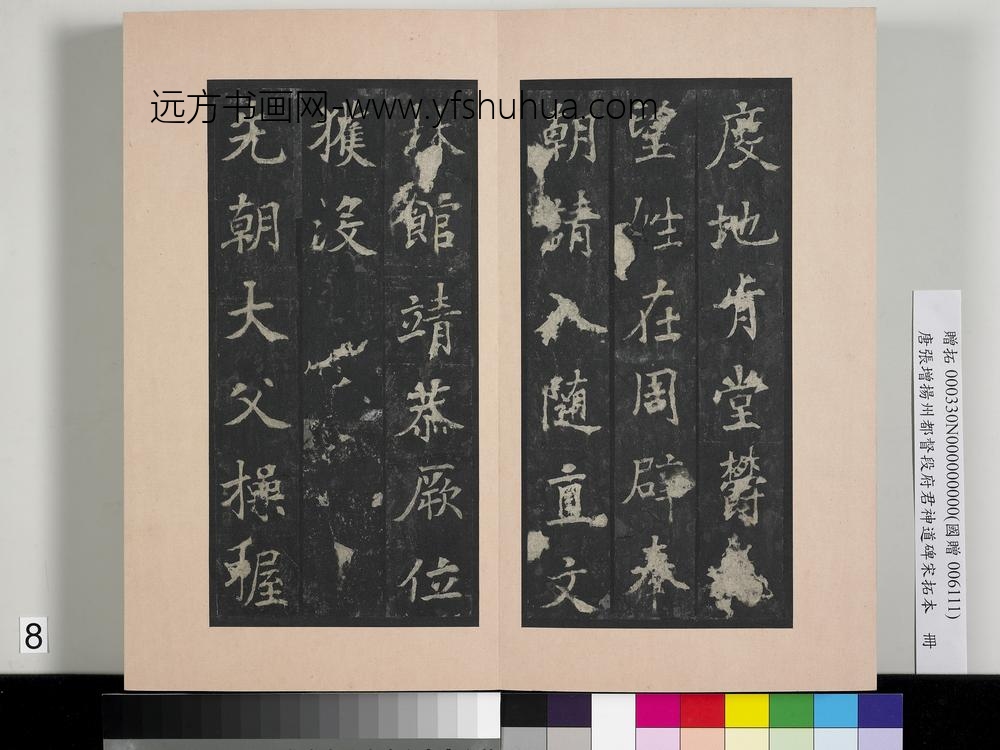 度地肯堂欝
望姓在周辟奉
朝請入隨直文
館靖恭厥位
獲没
先朝大父操握
远方书画网-www.yfshuhua.com
贈拓 000330N000000000(國贈 006111)
唐張增揚州都督段府君神道碑宋拓本 冊
8